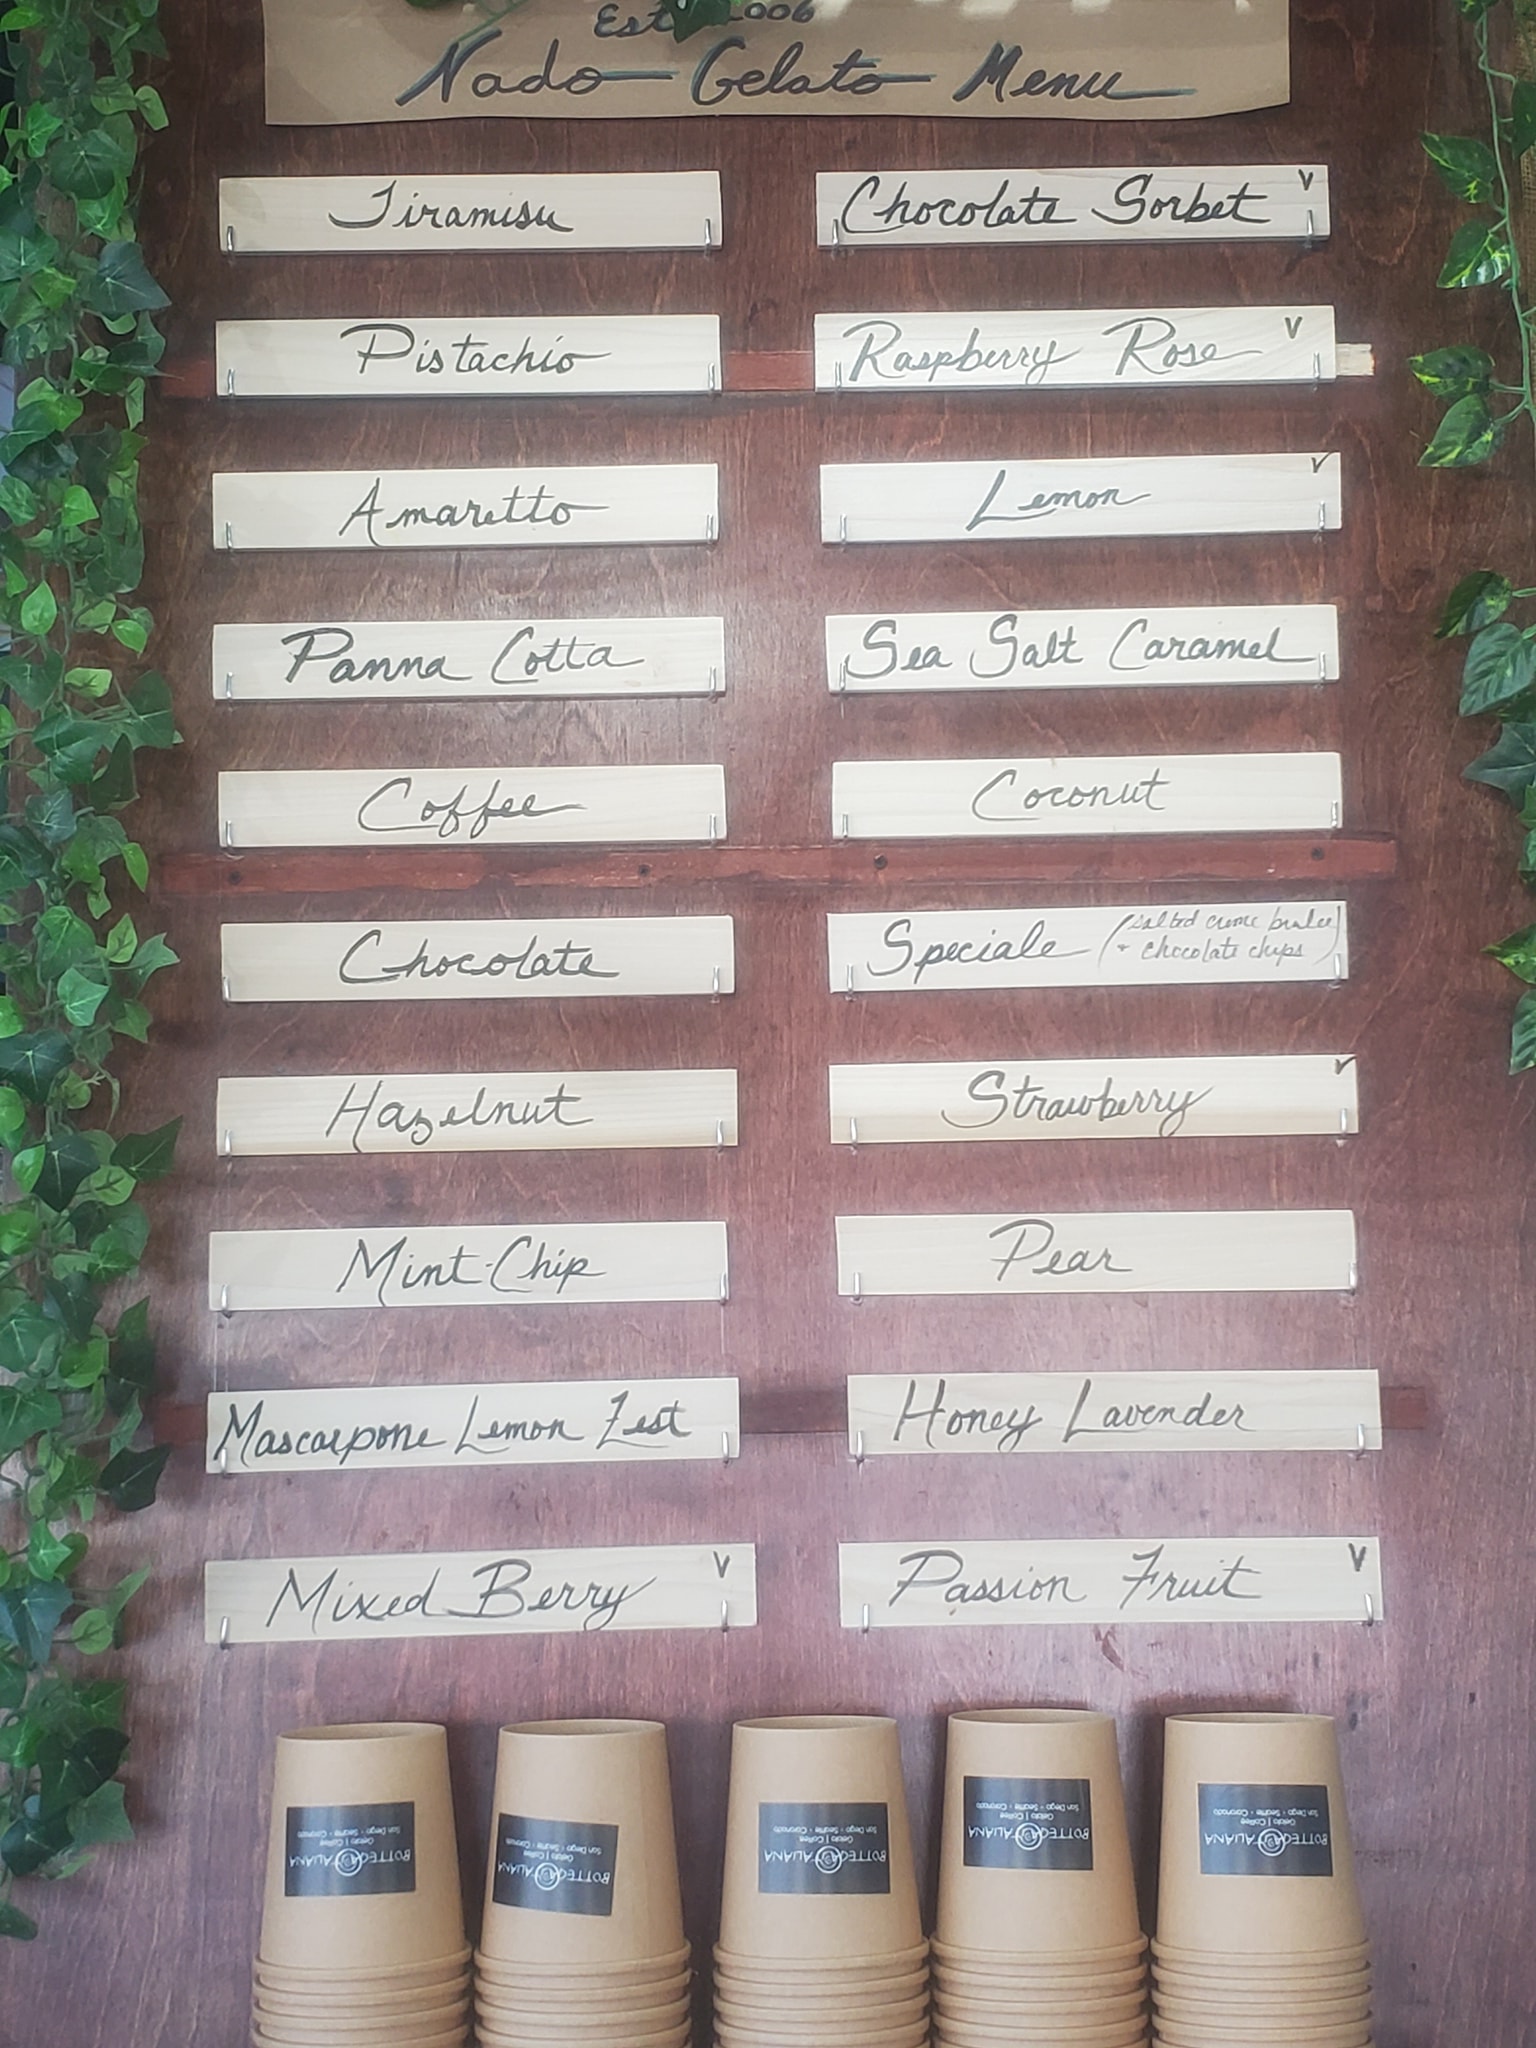 Est. 2006
Nado Gelato Menu
Tiramisu
Pistachio
Amaretto
Panna Cotta
Coffee
Chocolate
Hazelnut
Mint-Chip
Mascarpone Lemon Zest
Mixed Berry V
Chocolate Sorbet V
Raspberry Rose V
Lemon V
Sea Salt Caramel
Coconut
Speciale (salted creme brulee
+ chocolate chips)
Strawberry V
Pear
Honey Lavender
Passion Fruit V
BOTTEGA ITALIANA
Gelato | Coffee
San Diego - Seattle - Coronado
BOTTEGA ITALIANA
Gelato | Coffee
San Diego - Seattle - Coronado
BOTTEGA ITALIANA
Gelato | Coffee
San Diego - Seattle - Coronado
BOTTEGA ITALIANA
Gelato | Coffee
San Diego - Seattle - Coronado
BOTTEGA ITALIANA
Gelato | Coffee
San Diego - Seattle - Coronado